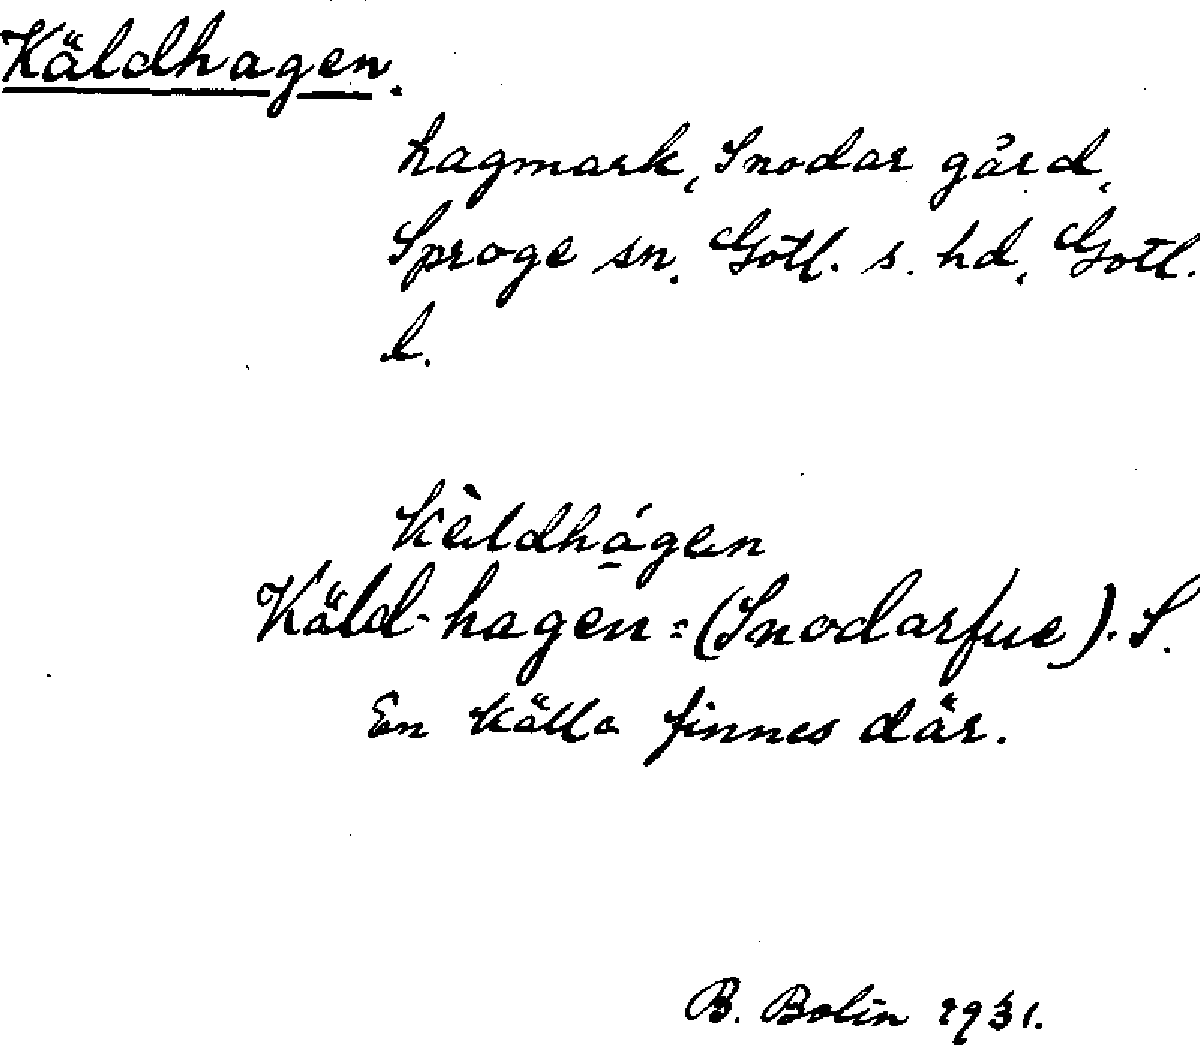 Käldhagen.
hagmark, Snodar gård,
Sproge sn, Gotl. s. hd, Gotl.
l.
kèldhágen
Käld-hagen = (Snodarfue). S.
En källa finnes där.
B. Bolin 1931.